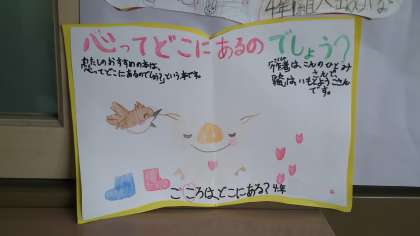 4年1組
心ってどこにあるのでしょう？
わたしのおすすめの本は、
「心ってどこにあるのでしょう?」という本です。
作者は、こんのひとみ
さんで、
絵は、いもとようこさん
です。
こころは、どこにある？4年